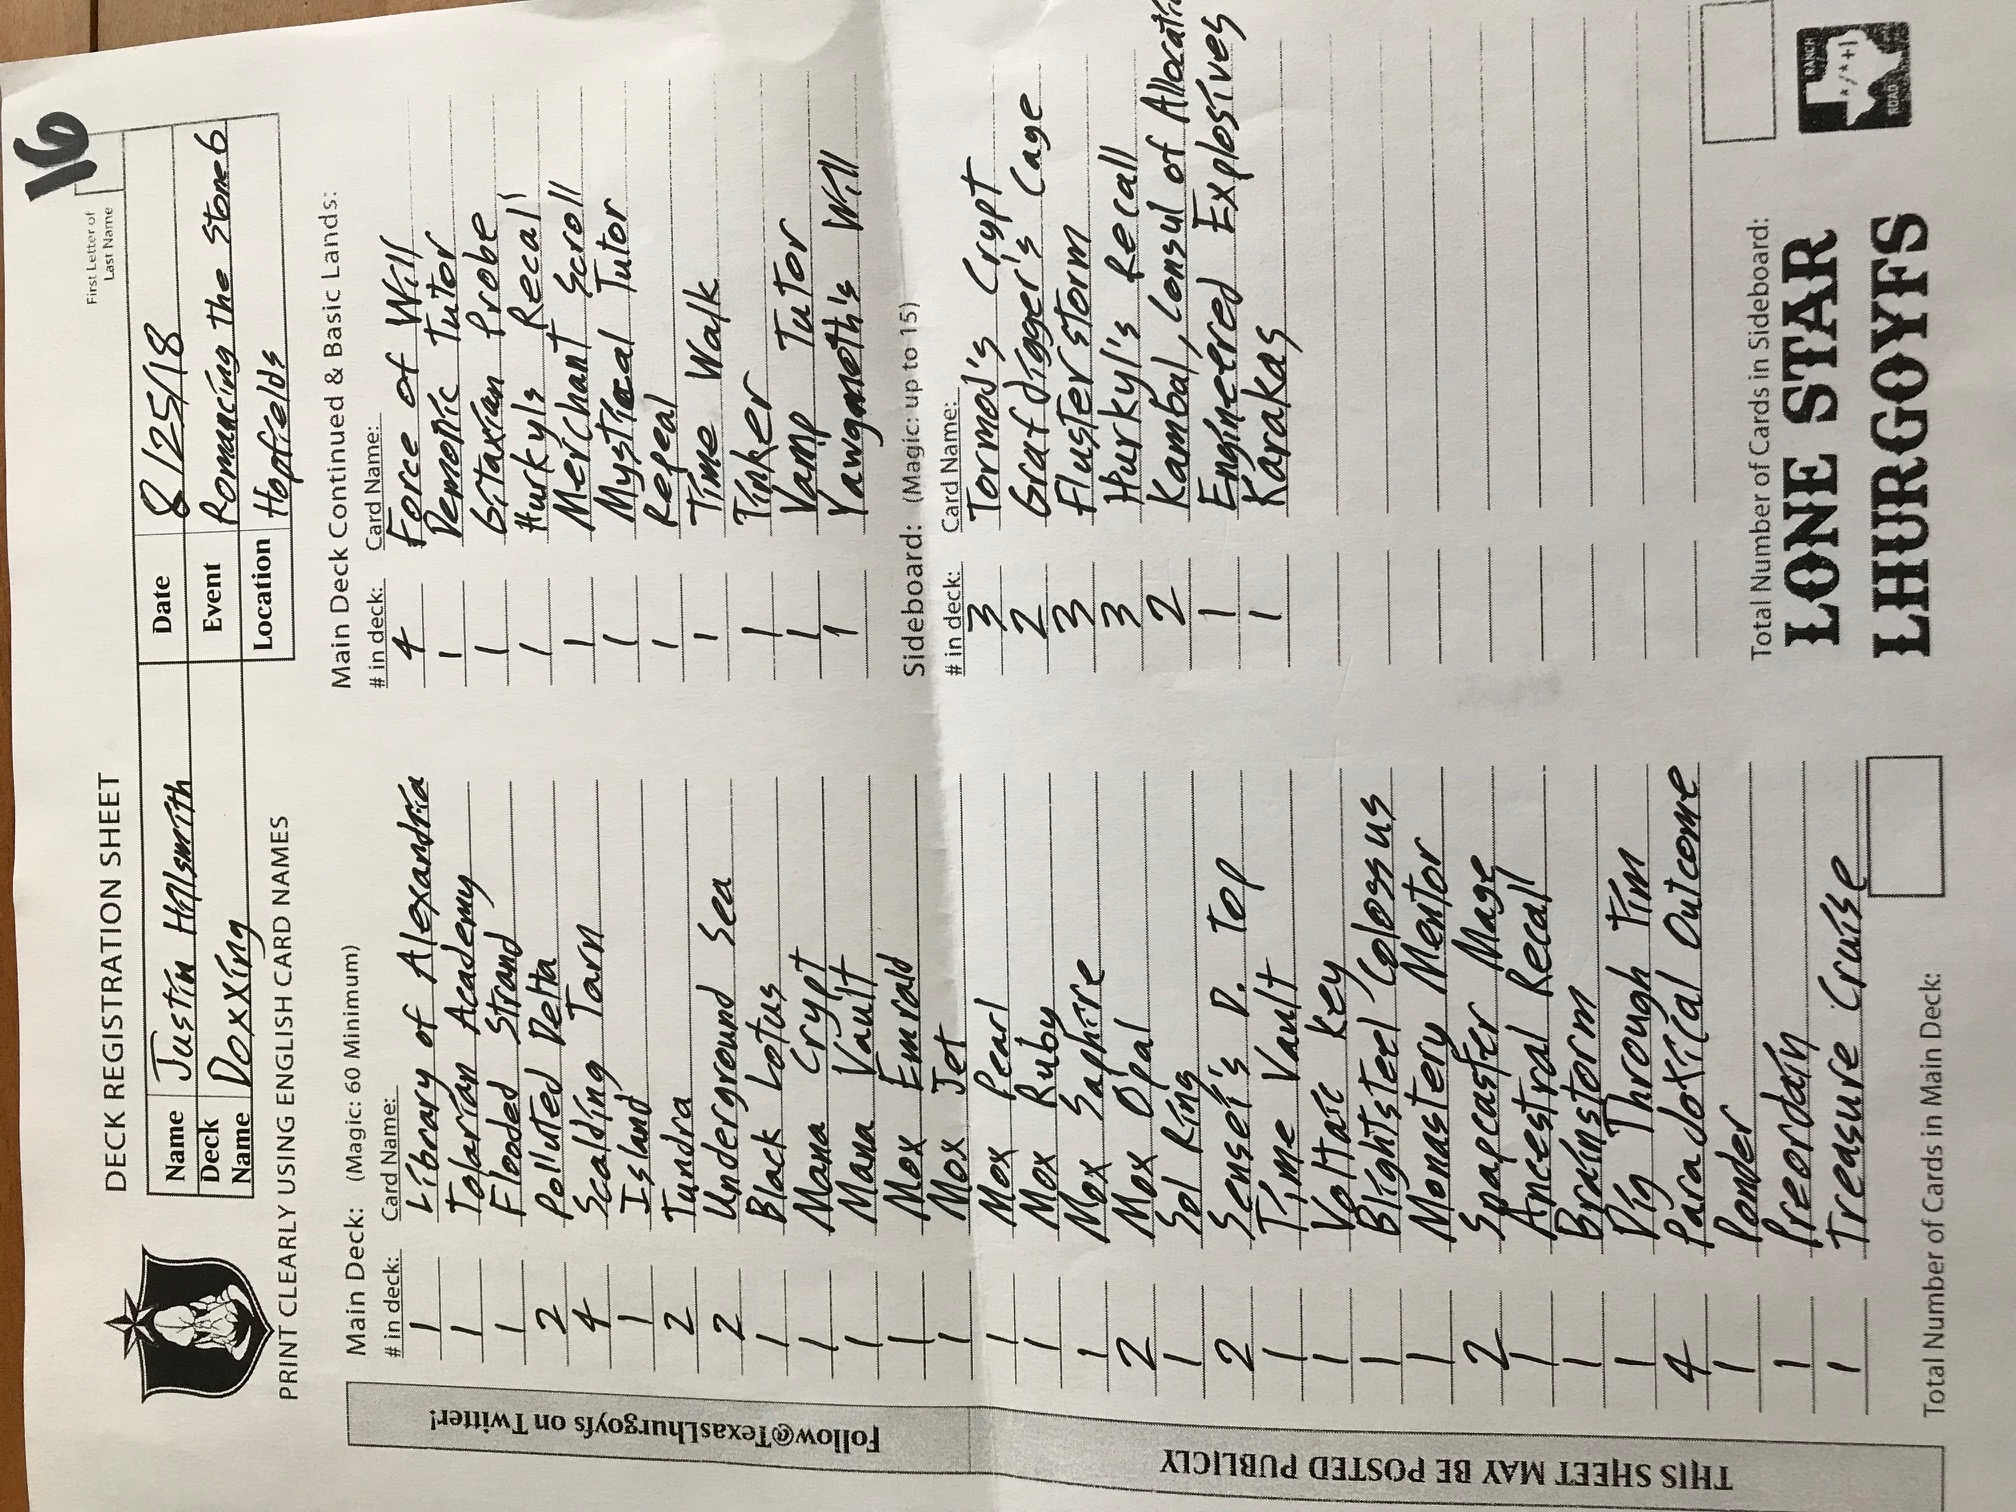 16
First Letter of
Last Name
DECK REGISTRATION SHEET
Name Justin Hillsmith
Deck Name Doxxing
Date 8/25/18
Event Romancing the Stone 6
Location Hopfields
PRINT CLEARLY USING ENGLISH CARD NAMES
Follow@TexasLhurgoyfs on Twitter!
THIS SHEET MAY BE POSTED PUBLICLY
Main Deck: (Magic: 60 Minimum)
# in deck: Card Name:
1 Library of Alexandria
1 Tolarian Academy
1 Flooded Strand
2 Polluted Delta
4 Scalding Tarn
1 Island
2 Tundra
2 Underground Sea
1 Black Lotus
1 Mana Crypt
1 Mana Vault
1 Mox Emrald
1 Mox Jet
1 Mox Pearl
1 Mox Ruby
1 Mox Saphire
2 Mox Opal
1 Sol Ring
2 Sensei's D. Top
1 Time Vault
1 Voltaic Key
1 Blightsteel Colossus
1 Monastery Mentor
2 Snapcaster Mage
1 Ancestral Recall
1 Brainstorm
1 Dig Through Tim
4 Paradoxical Outcome
1 Ponder
1 Preordain
1 Treasure Cruise
Total Number of Cards in Main Deck:
Main Deck Continued & Basic Lands:
# in deck: Card Name:
4 Force of Will
1 Demonic Tutor
1 Gitaxian Probe
1 Hurkyls Recall
1 Merchant Scroll
1 Mystical Tutor
1 Repeal
1 Time Walk
1 Tinker
1 Vamp Tutor
1 Yawgmoth's Will
Sideboard: (Magic: up to 15)
# in deck: Card Name:
3 Tormod's Crypt
2 Grafdigger's Cage
3 Flusterstorm
3 Hurkyl's Recall
2 Kambal, Consul of Allocati
1 Engineered Explosives
1 Karakas
Total Number of Cards in Sideboard:
LONE STAR
LHURGOYFS
RANCH
*/*+1
ROAD